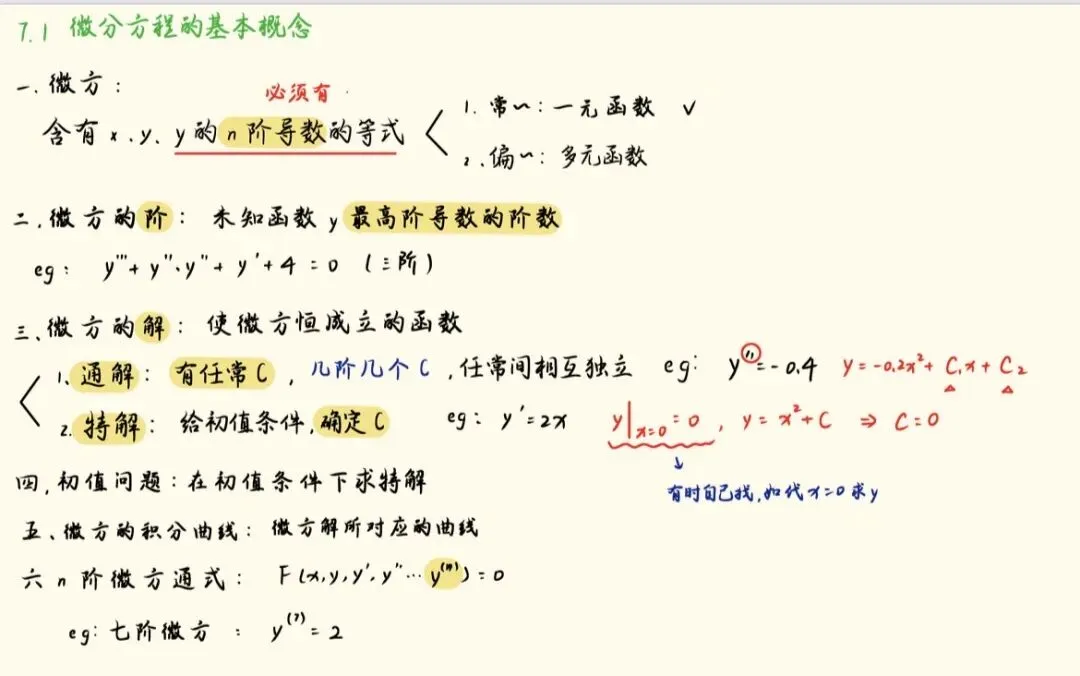 7.1 微分方程的基本概念
一.微方：
必须有
含有x、y、y的n阶导数的等式
1. 常~：一元函数 √
2. 偏~：多元函数
二.微方的阶：未知函数y最高阶导数的阶数
eg： y'''+y''·y''+y'+4=0 (三阶)
三、微方的解：使微方恒成立的函数
1. 通解：有任常C，几阶几个C，任常间相互独立 eg： y''=-0.4 y=-0.2x²+C₁x+C₂
2. 特解：给初值条件,确定C eg： y'=2x y|x=0=0, y=x²+C ⇒ C=0
有时自己找,如代x=0求y
四,初值问题：在初值条件下求特解
五、微方的积分曲线：微方解所对应的曲线
六 n阶微方通式： F(x,y,y',y''…y⁽ⁿ⁾)=0
eg：七阶微方： y⁽⁷⁾=2